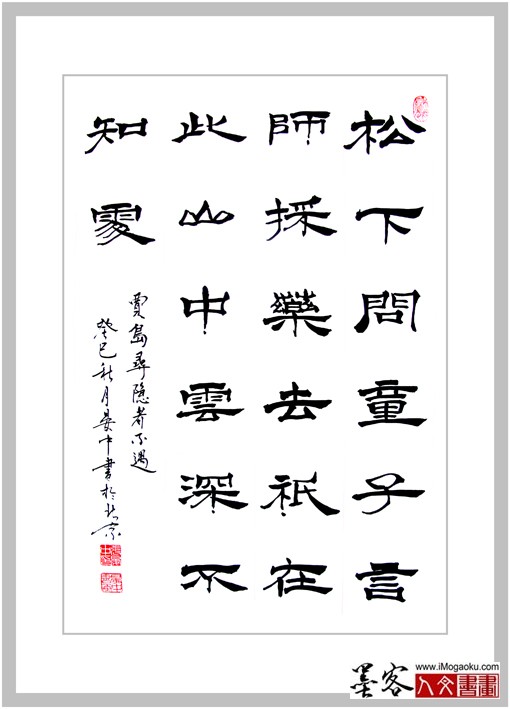 松下問童子言
師採藥去祇在
此山中雲深不
知處
賈島尋隱者不遇
癸巳秋月晏中書於北京
墨客
www.iMogaoku.com
人文書畫